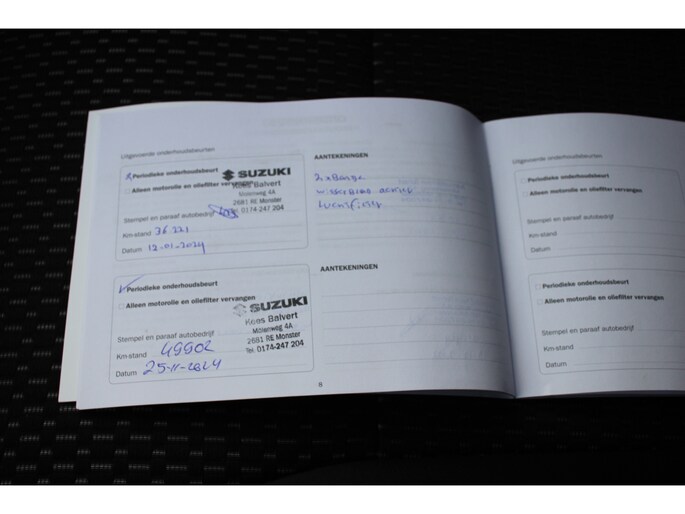 Uitgevoerde onderhoudsbeurten
Periodieke onderhoudsbeurt
Alleen motorolie en oliefilter vervangen
SUZUKI
Kees Balvert
2681 RE Monster
Tel. 0174-247 204
Stempel en paraaf autobedrijf
Km-stand 36 221
Datum 12-01-2024
AANTEKENINGEN
wisserblad achter
Luchtfilter
Periodieke onderhoudsbeurt
Alleen motorolie en oliefilter vervangen
SUZUKI
Kees Balvert
2681 RE Monster
Tel. 0174-247 204
Stempel en paraaf autobedrijf
Km-stand 49902
Datum 25-11-2024
AANTEKENINGEN
Uitgevoerde onderhoudsbeurten
Periodieke onderhoudsbeurt
Alleen motorolie en oliefilter vervangen
Stempel en paraaf autobedrijf
Km-stand
Datum
Periodieke onderhoudsbeurt
Alleen motorolie en oliefilter vervangen
Stempel en paraaf autobedrijf
Km-stand
Datum